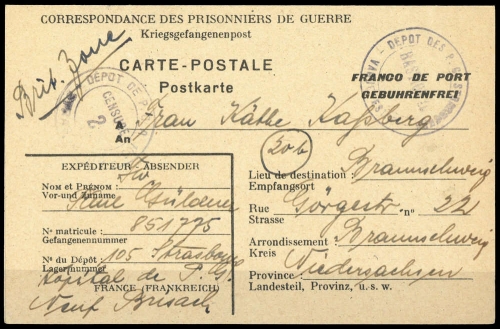 CORRESPONDANCE DES PRISONNIERS DE GUERRE
Kriegsgefangenenpost
Brit. Zone
CARTE-POSTALE
Postkarte
FRANCO DE PORT
GEBUHRENFREI
DEPOT DES P.G.
CENSURE
2
DEPOT DES P.
A
An
Frau Käthe
20b
EXPÉDITEUR - ABSENDER
NOM et PRÉNOM :
Vor-und Zuname
N° matricule : 851775
Gefangenennummer
N° du Dépôt : 105 Strasbourg
Lagernummer
Hôpital de P.G.
FRANCE (FRANKREICH)
Neuf Brisach
Lieu de destination Braunschweig
Empfangsort
Rue Görgestr. n° 22
Strasse
Arrondissement Braunschweig
Kreis
Province : Niedersachsen
Landesteil, Provinz, u. s. w.